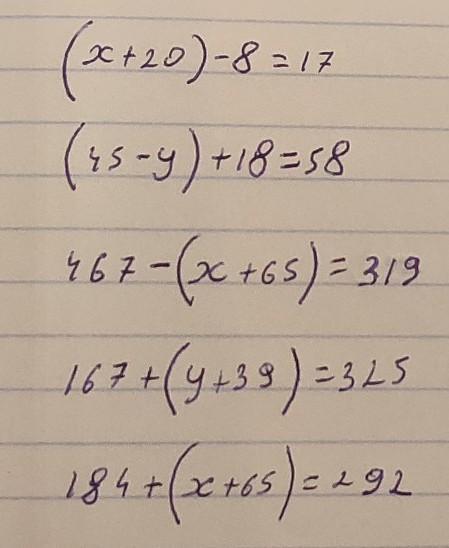 (x+20)-8=17
(45-y)+18=58
467-(x+65)=319
167+(y+39)=325
184+(x+65)=292